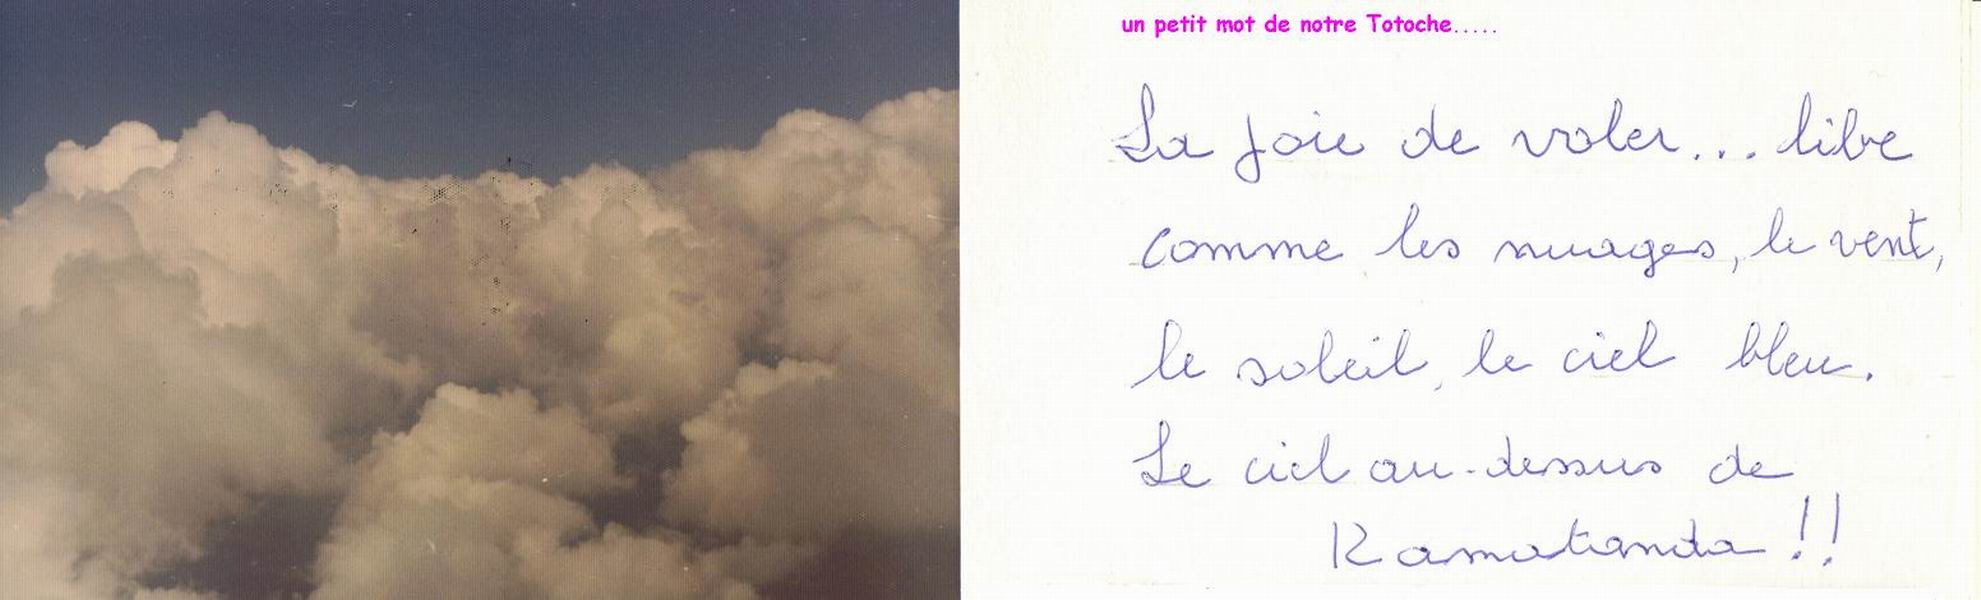 un petit mot de notre Totoche.....
La joie de voler... libre
comme les nuages, le vent,
le soleil, le ciel bleu.
Le ciel au-dessus de
Kamatanda !!